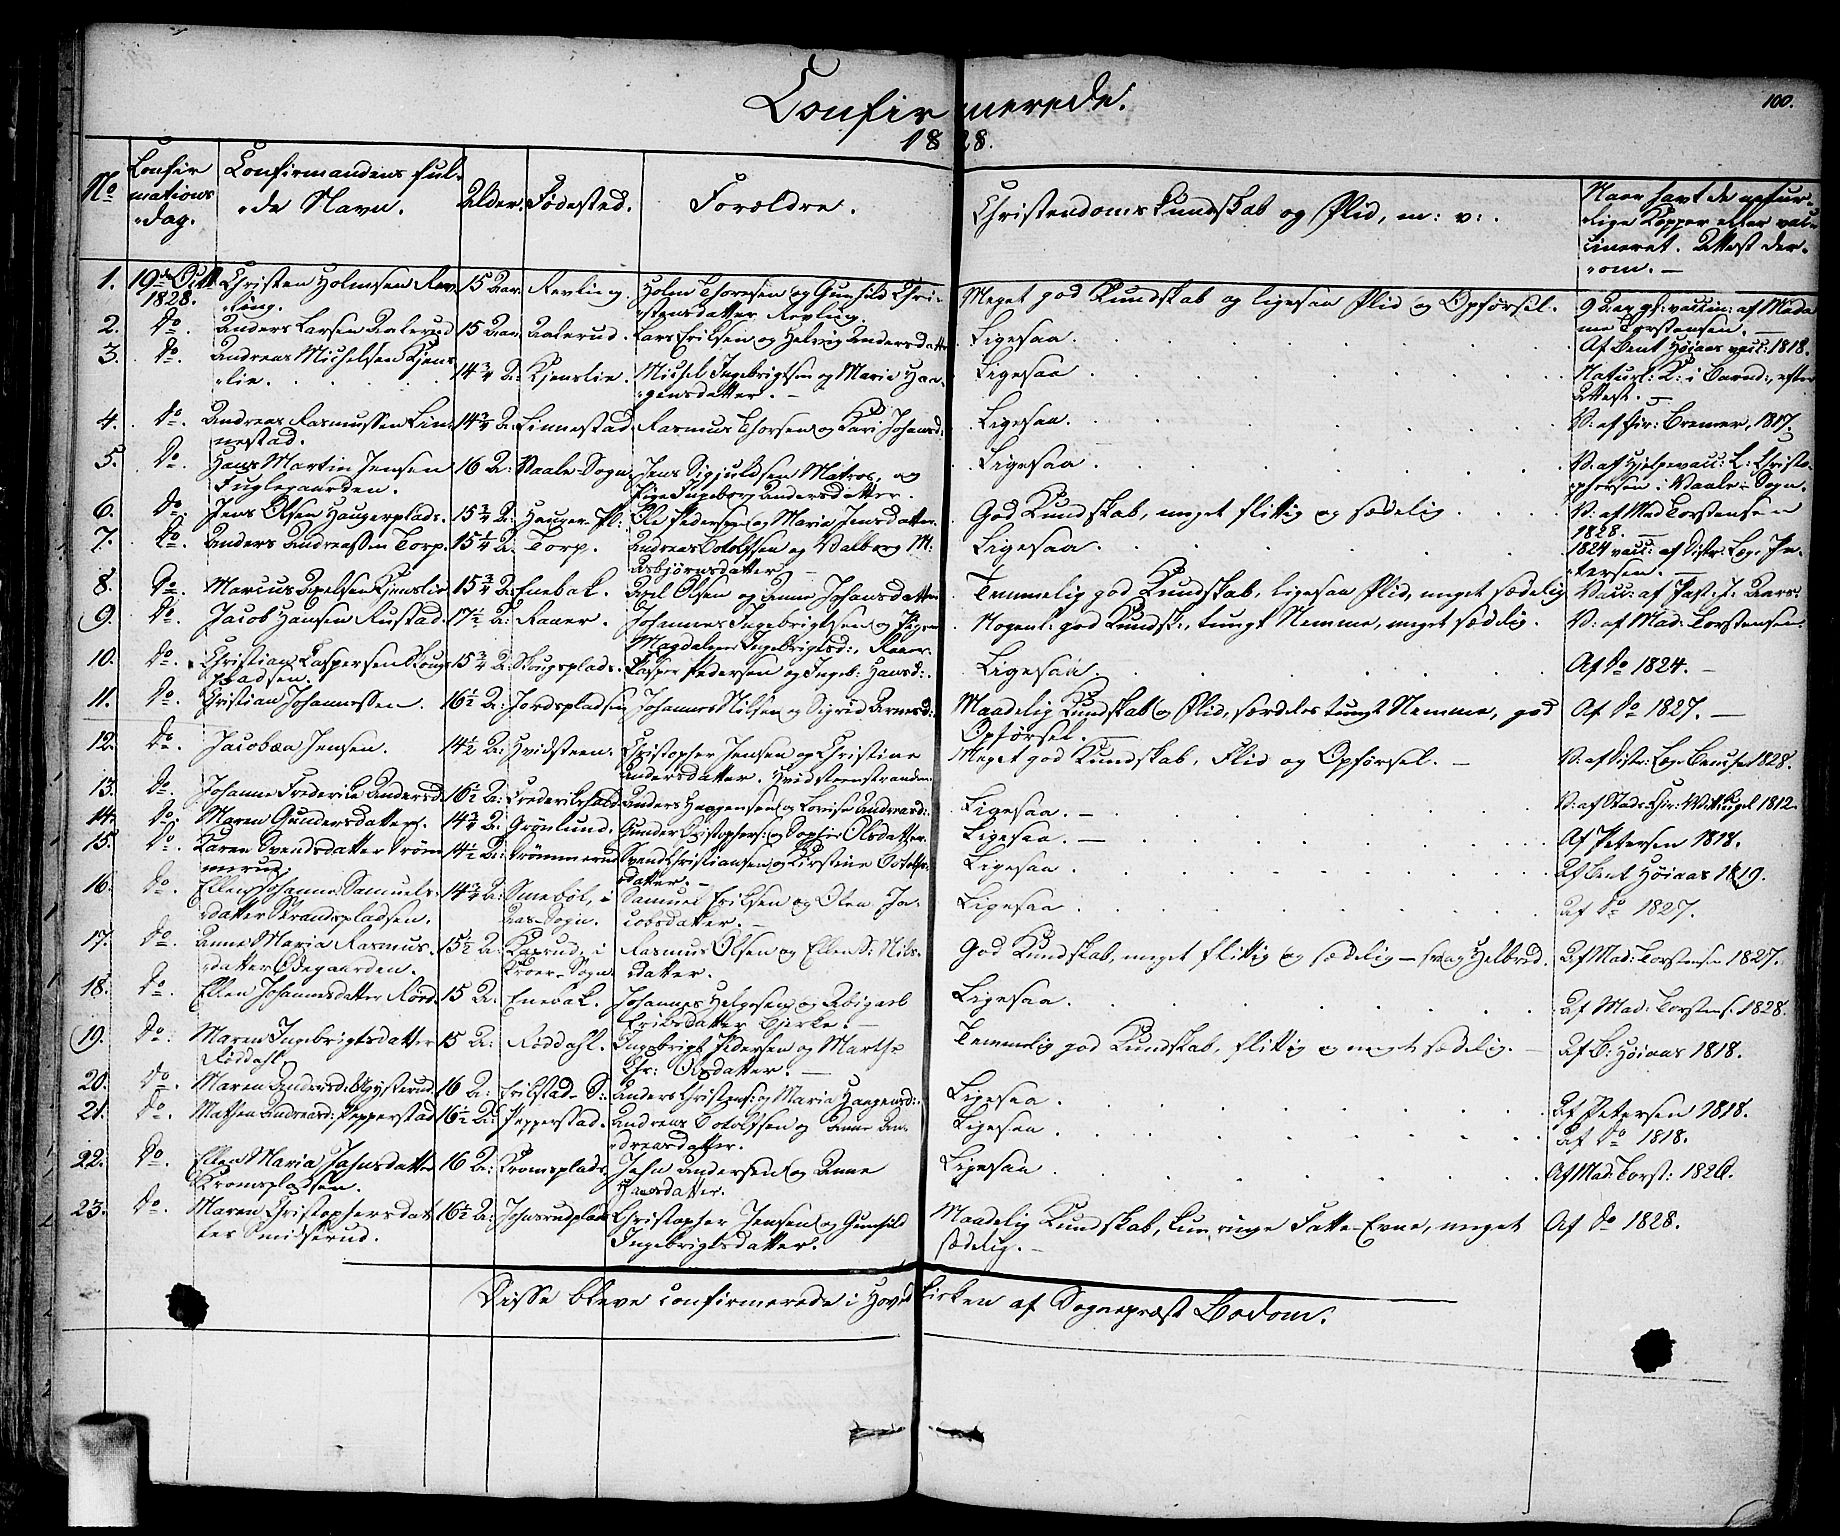 100.
Confirmerede.
1828.
No
Confirmations dag.
Confirmandens fulde Navn.
Alder.
Fødested.
Forældre.
Christendoms Kundskab og Flid, m: v:.
Naar havt de naturlige Kopper eller vaccineret. Attest derom.
1. 19de Octbr 1828. Christen Holmsen Revling. 15 Aar. Revling. Holm Thoresen og Gunhild Christensdatter Revling. Meget god Kundskab og ligesaa Flid og Opførsel. 9 Aar gl: vaccin: af Madame Torstensen.
2. Do. Anders Larsen Aalerud 15 Aar. Aalerud. Lars Eriksen og Helvig Andersdatter Ligesaa. Af Bent Høiaas vacc: 1818.
3. Do. Andreas Michelsen Kjenslie. 14 3/4 A: Kjenslie. Michel Ingebrigtsen og Maria Haagensdatter. Ligesaa. Naturl: K: i Barnd:, efter Attest.
4. Do. Andreas Rasmussen Linnestad. 14 3/4 A: Linnestad. Rasmus Thorsen og Kari Johansd: Ligesaa. V: af Chir: Bremer, 1817.
5. Do. Hans Martin Jensen Fuglegaarden. 16 A: Vaale-Sogn. Jens Sigjuldsen Matros, og Pige Ingeborg Andersdatter. Ligesaa. V: af Hjelpevacc: L: Christophersen i Vaale-Sogn.
6. Do. Jens Olsen Haugerplads. 15 3/4 A: Hauger-Pl: Ole Pedersen og Maria Jensdatter. God Kundskab, meget flittig og sædelig. V: af Mad Torstensen 1828.
7. Do. Anders Andreassen Torp. 15 1/4 A: Torp. Andreas Botolfsen og Valborg M: Asbjørnsdatter Ligesaa. 1824 vacc: af Distr: Læge Petersen.
8. Do. Marcus Axelsen Kjenslie 15 3/4 A: Enebak. Axel Olsen og Anne Johansdatter Temmelig god Kundskab, ligesaa Flid, meget sædelig Vacc: af Past:
9. Do. Jacob Hansen Rustad. 17 1/2 A: Raaer. Johannes Ingebrigtsen og Pigen Magdalene Ingebrigtsd:, Raaer. Nogenl: god Kundsk:, tungt Nemme, meget sædelig. V: af Mad: Torstensen.
10. Do. Christian Caspersen Skougpladsen. 15 3/4 A: Skougsplads. Casper Pedersen og Ingeb: Hansd:. Ligesaa. Af Do 1824.
11. Do. Christian Johannessen. 16 1/2 A: Jordspladsen Johannes Nilsen og Sigrid Arnesd: Maadelig Kundskab og Flid, særdeles tungt Nemme, god Opførsel. Af Do 1827.
12. Do. Jacobæa Jensen. 14 1/2 A: Hvidsteen. Christopher Jensen og Christine Andersdatter. Hvidsteenstranden Meget god Kundskab, Flid og Opførsel. V: af Distr: Læge 1828.
13. Do. Johanne Frederice Andersd 16 1/2 A: Frederikshald Anders Haagensen og Lovise Andreasd: Ligesaa. V: af Stads-Chir: 1812.
14. Do. Maren Gundersdatter. 14 3/4 A: Grønlund. Gunder Christophers: og Sophie Olsdatter. Ligesaa. Af Petersen 1818.
15. Do. Karen Svendsdatter Drømmerud. 14 1/2 A: Drømmerud Svend Christiansen og Kirstine Botolfsdatter. Ligesaa. Af Bent Høiaas 1819.
16. Do. Ellen Johanne Samuelsdatter Strandspladsen. 14 3/4 A: Smebøl, i Aas-Sogn. Samuel Eriksen og Olea Jacobsdatter. Ligesaa. Af Do 1827.
17. Do. Anne Maria Rasmusdatter Ødegaarden. 15 1/2 A: Kaxrud, i Kroer-Sogn Rasmus Olsen og Ellen S: Nilsdatter. God Kundskab, meget flittig og sædelig - svag Helbred. Af Mad: Torstensen 1827.
18. Do. Ellen Johannesdatter Rørd. 15 A: Enebak. Johannes Helgesen og Abigael Eriksdatter Bjerke. Ligesaa. Af Mad: Torstens: 1828.
19. Do: Maren Ingebrigtsdatter Røddahl. 15 A: Røddahl. Ingebrigt Pedersen og Marthe Chr: Olsdatter. Temmelig god Kundskab, flittig og meget sædelig. Af B: Høiaas 1818.
20. Do. Maren Andersd: 16 A: Anders Christens: og Maria Haagensd: Ligesaa. Af Petersen 1818.
21. Do. Mathea Andreasd: Pepperstad 16 1/2 A: Pepperstad. Andreas Botolfsen og Anne Andreasdatter. Ligesaa. Af Do 1818.
22. Do. Ellen Maria Jahnsdatter Kromspladsen. 16 A: Kromsplads. Jahn Andersen og Anne Hansdatter. Ligesaa Af Mad: Torst: 1826.
23. Do. Maren Christophersdatter Smidsrud. 16 1/2 A: Johnsrudplads Christopher Jensen og Gunhild Ingebrigtsdatter. Maadelig Kundskab, kun ringe Fatte-Evne, meget sædelig. Af Do 1828.
Disse bleve confirmerede i Hovedkirken af Sognepræst Bodom.